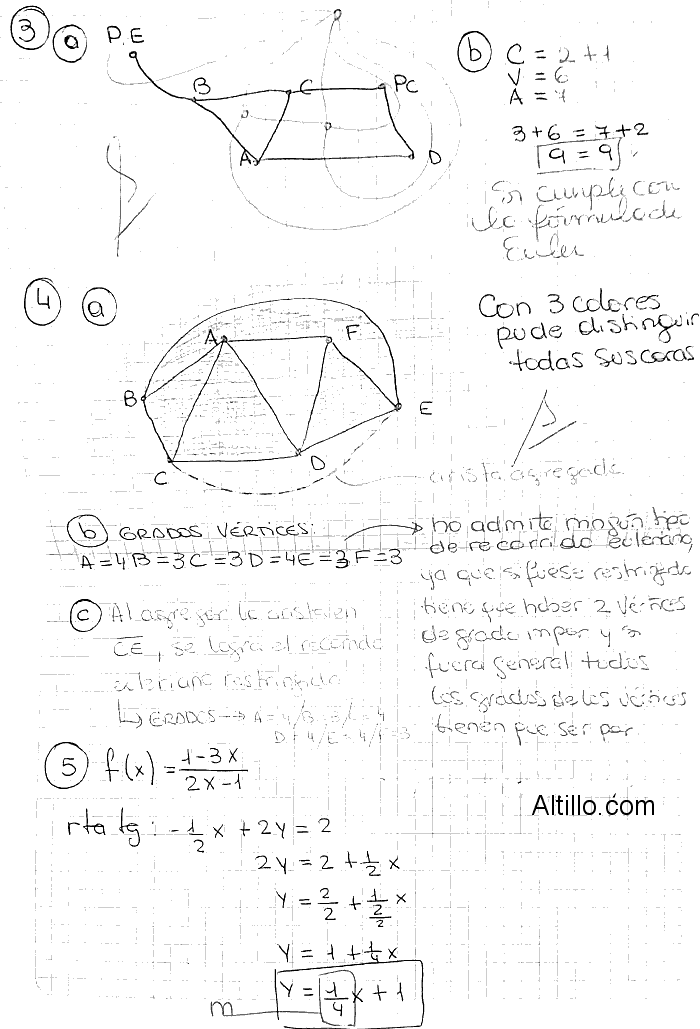 3 a P.E
B C PC
A D
b C = 2+1
V = 6
A = 7
3+6 = 7+2
9 = 9
Si cumple con
la fórmula de
Euler
4 a
A F
B E
C D
Con 3 colores
pude distinguir
todas sus caras
arista agregada
b GRADOS VÉRTICES:
A=4 B=3 C=3 D=4 E=3 F=3
no admite ningún tipo
de recorrido euleriano,
ya que si fuese restringido
tiene que haber 2 vértices
de grado impar y si
fuera general todos
los grados de los vértices
tienen que ser par.
c Al agregar la arista en
CE, se logra el recorrido
euleriano restringido
↳ GRADOS → A=4/B=3/C=4
D=4/E=4/F=3
5 f(x) = (1-3x)/(2x-1)
rta tg: -1/2 x + 2y = 2
2y = 2 + 1/2 x
y = 2/2 + (1/2)/2 x
y = 1 + 1/4 x
y = 1/4 x + 1
m
Altillo.com